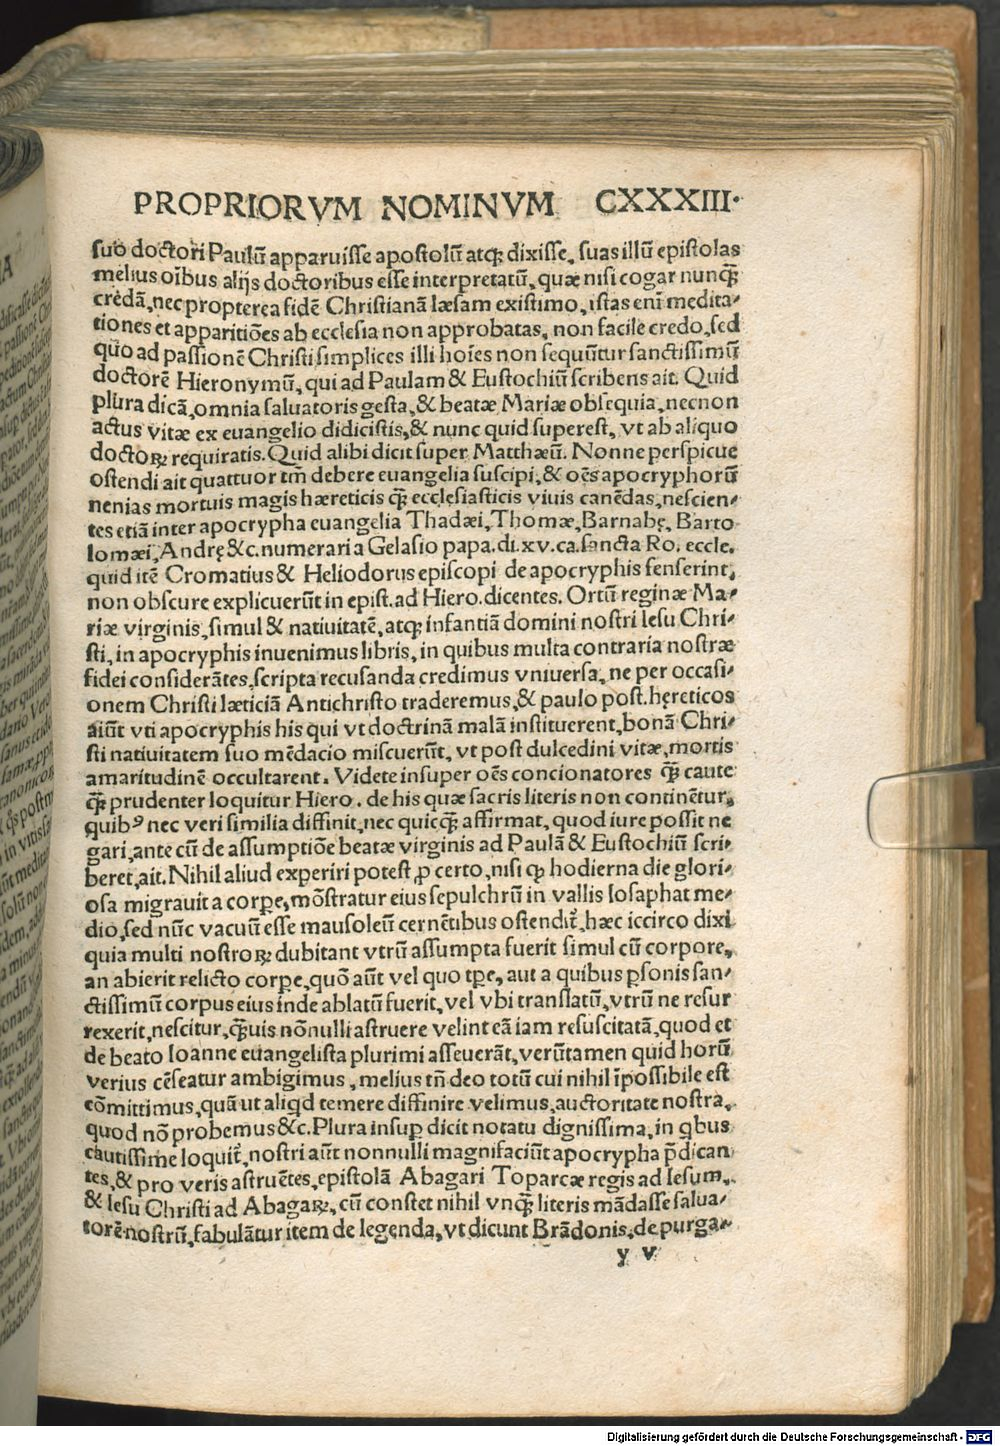 PROPRIORVM NOMINVM CXXXIII·
suo doctori Paulū apparuisse apostolū atqꝫ dixisse, suas illū epistolas
melius oībus alijs doctoribus esse interpretatū, quæ nisi cogar nunqꝫ̄
credā, nec propterea fidē Christianā læsam existimo, istas enī medita⸗
tiones et apparitiōes ab ecclesia non approbatas, non facile credo, sed
quo ad passionē Christi simplices illi hoīes non sequūtur sanctissimū
doctorē Hieronymū, qui ad Paulam & Eustochiū scribens ait. Quid
plura dicā, omnia saluatoris gesta, & beatæ Mariæ obsequia, necnon
actus vitæ ex euangelio didicistis, & nunc quid superest, vt ab aliquo
doctoꝝ requiratis. Quid alibi dicit super Matthæū. Nonne perspicue
ostendi ait quattuor tm̄ debere euangelia suscipi, & oēs apocryphorū
nenias mortuis magis hæreticis qꝫ̄ ecclesiasticis viuis canēdas, nescien⸗
tes etiā inter apocrypha euangelia Thadæi, Thomæ, Barnabę, Barto
lomæi, Andrę &c. numerari a Gelasio papa. di. xv. ca. sancta Ro. eccle.
quid itē Cromatius & Heliodorus episcopi de apocryphis senserint,
non obscure explicuerūt in epist. ad Hiero. dicentes. Ortū reginæ Ma⸗
riæ virginis, simul & natiuitatē, atqꝫ infantiā domini nostri Iesu Chri⸗
sti, in apocryphis inuenimus libris, in quibus multa contraria nostræ
fidei considerātes, scripta recusanda credimus vniuersa, ne per occasi⸗
onem Christi læticiā Antichristo traderemus, & paulo post. hęreticos
aiūt vti apocryphis his qui vt doctrinā malā instituerent, bonā Chri⸗
sti natiuitatem suo mēdacio miscuerūt, vt post dulcedini vitæ, mortis
amaritudinē occultarent. Videte insuper oēs concionatores qꝫ̄ caute
qꝫ̄ prudenter loquitur Hiero. de his quæ sacris literis non continētur,
quibꝰ nec veri similia diffinit, nec quicqꝫ̄ affirmat, quod iure possit ne
gari, ante cū de assumptiōe beatæ virginis ad Paulā & Eustochiū scri⸗
beret, ait. Nihil aliud experiri potest ꝓ certo, nisi ꝙ hodierna die glori⸗
osa migrauit a corꝑe, mōstratur eius sepulchrū in vallis Iosaphat me⸗
dio, sed nūc vacuū esse mausoleū cernētibus ostendit̄, hæc iccirco dixi
quia multi nostroꝝ dubitant vtrū assumpta fuerit simul cū corpore,
an abierit relicto corꝑe, quō aūt vel quo tꝑe, aut a quibus ꝑsonis san⸗
ctissimū corpus eius inde ablatū fuerit, vel vbi translatū, vtrū ne resur
rexerit, nescitur, qꝫ̄uis nōnulli astruere velint eā iam resuscitatā, quod et
de beato Ioanne euangelista plurimi asseuerāt, verūtamen quid horū
verius cēseatur ambigimus, melius tn̄ deo totū cui nihil īpossibile est
cōmittimus, quā ut aliqd temere diffinire velimus, auctoritate nostra,
quod nō probemus &c. Plura insuꝑ dicit notatu dignissima, in qbus
cautissime loquit̄, nostri aūt nonnulli magnifaciūt apocrypha p̄dican
tes, & pro veris astruētes, epistolā Abagari Toparcæ regis ad Iesum,
& Iesu Christi ad Abagaꝝ, cū constet nihil vnqꝫ̄ literis mādasse salua⸗
torē nostrū, fabulātur item de legenda, vt dicunt Brādonis, de purga⸗
y v
Digitalisierung gefördert durch die Deutsche Forschungsgemeinschaft - DFG